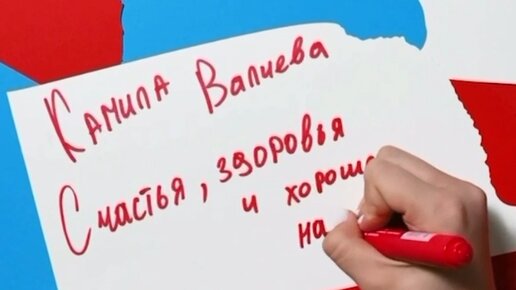 Камила Валиева
Счастья, здоровья
и хорош
на